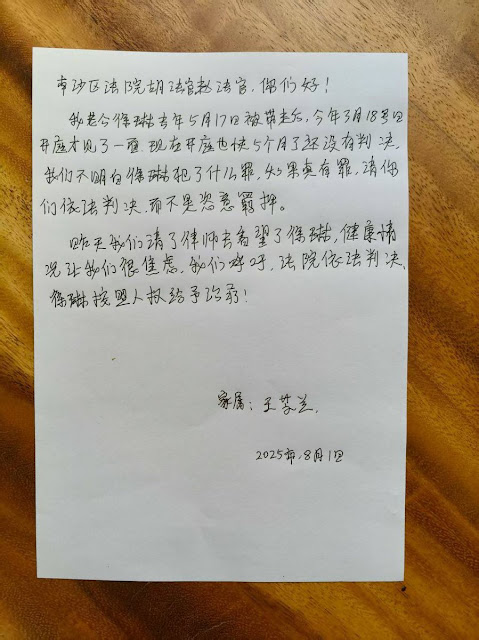 南沙区法院胡法官赵法官，你们好！
我老公徐琳去年5月17日被带走后，今年3月18号日
开庭才见了一面 现在开庭也快5个月了还没有判决，
我们不明白徐琳犯了什么罪，如果真有罪，请你
们依法判决，而不是恣意羁押。
昨天我们请了律师去看望了徐琳，健康情
况让我们很焦虑，我们呼吁，法院依法判决、
徐琳 人权给予治疗！
家属：王
2025年，8月1日